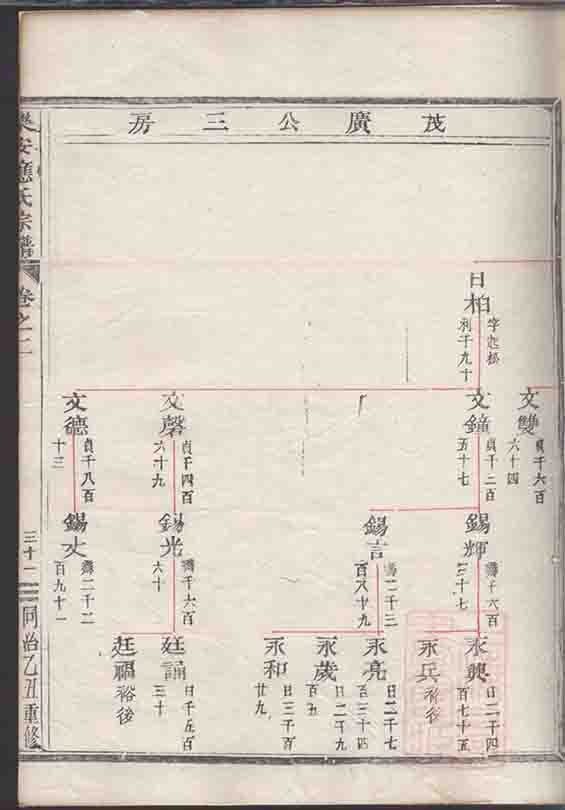 茂廣公三房
日柏
字起松
利千九十
文雙
貞千六百
六十四
文鐘
貞千二百
五十七
文磬
貞千四百
六十九
文德
貞千八百
十三
錫輝
壽千六百
三十七
錫言
壽二千三
百八十九
錫光
壽千六百
六十
錫丈
壽二千二
百九十一
永興
日二千四
百七十五
永兵
裕後
永亮
日二千七
百三十四
永歲
日二千九
百五
永和
日三千百
廿九
廷誦
日千五百
三十
廷福
裕後
樂安應氏宗譜
卷之二
三十一
同治乙丑重修